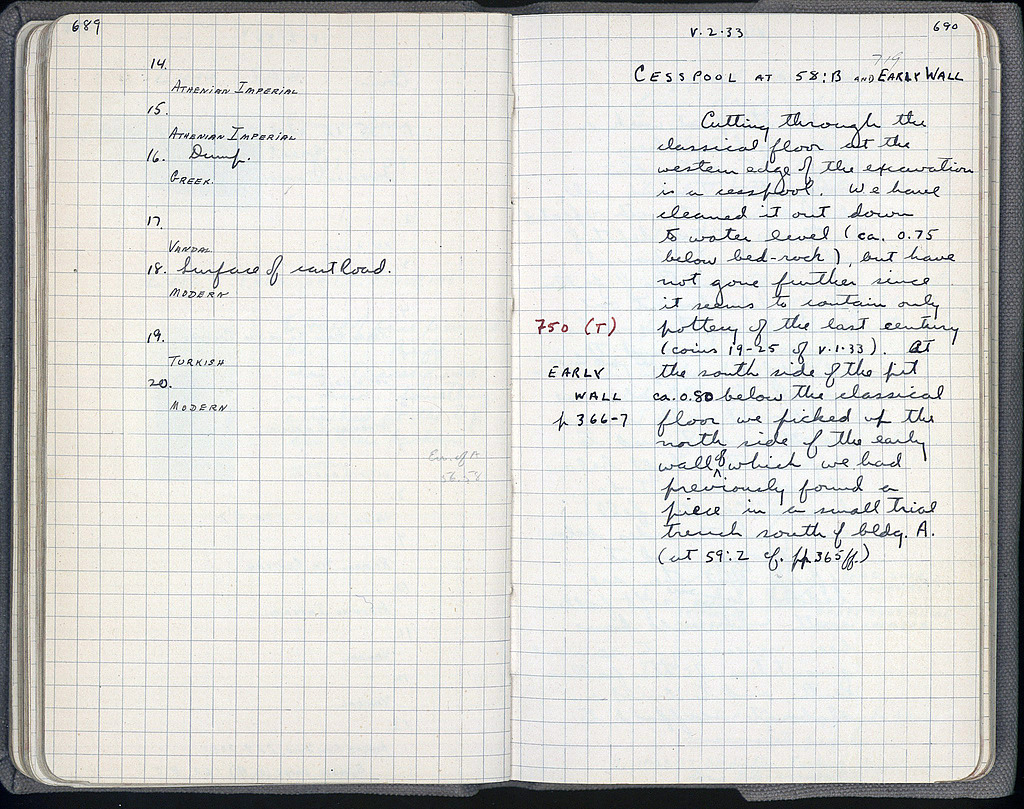 689
14.
ATHENIAN IMPERIAL
15.
ATHENIAN IMPERIAL
16. Dump.
GREEK.
17.
VANDAL
18. Surface of east Road.
MODERN
19.
TURKISH
20.
MODERN
56.58
V.2.33
690
719
CESSPOOL AT 58:B AND EARLY WALL
Cutting through the
classical floor at the
western edge of the excavation
is a cesspool. We have
cleaned it out down
to water level (ca. 0.75
below bed-rock), but have
not gone further since
it seems to contain only
750 (T) pottery of the last century
(coins 19-25 of V.1.33). At
EARLY the south side of the pit
WALL ca. 0.80 below the classical
p 366-7 floor we picked up the
north side of the early
wall of which we had
previously found a
piece in a small trial
trench south of bldg. A.
(at 59:2 cf. pp. 365ff.)